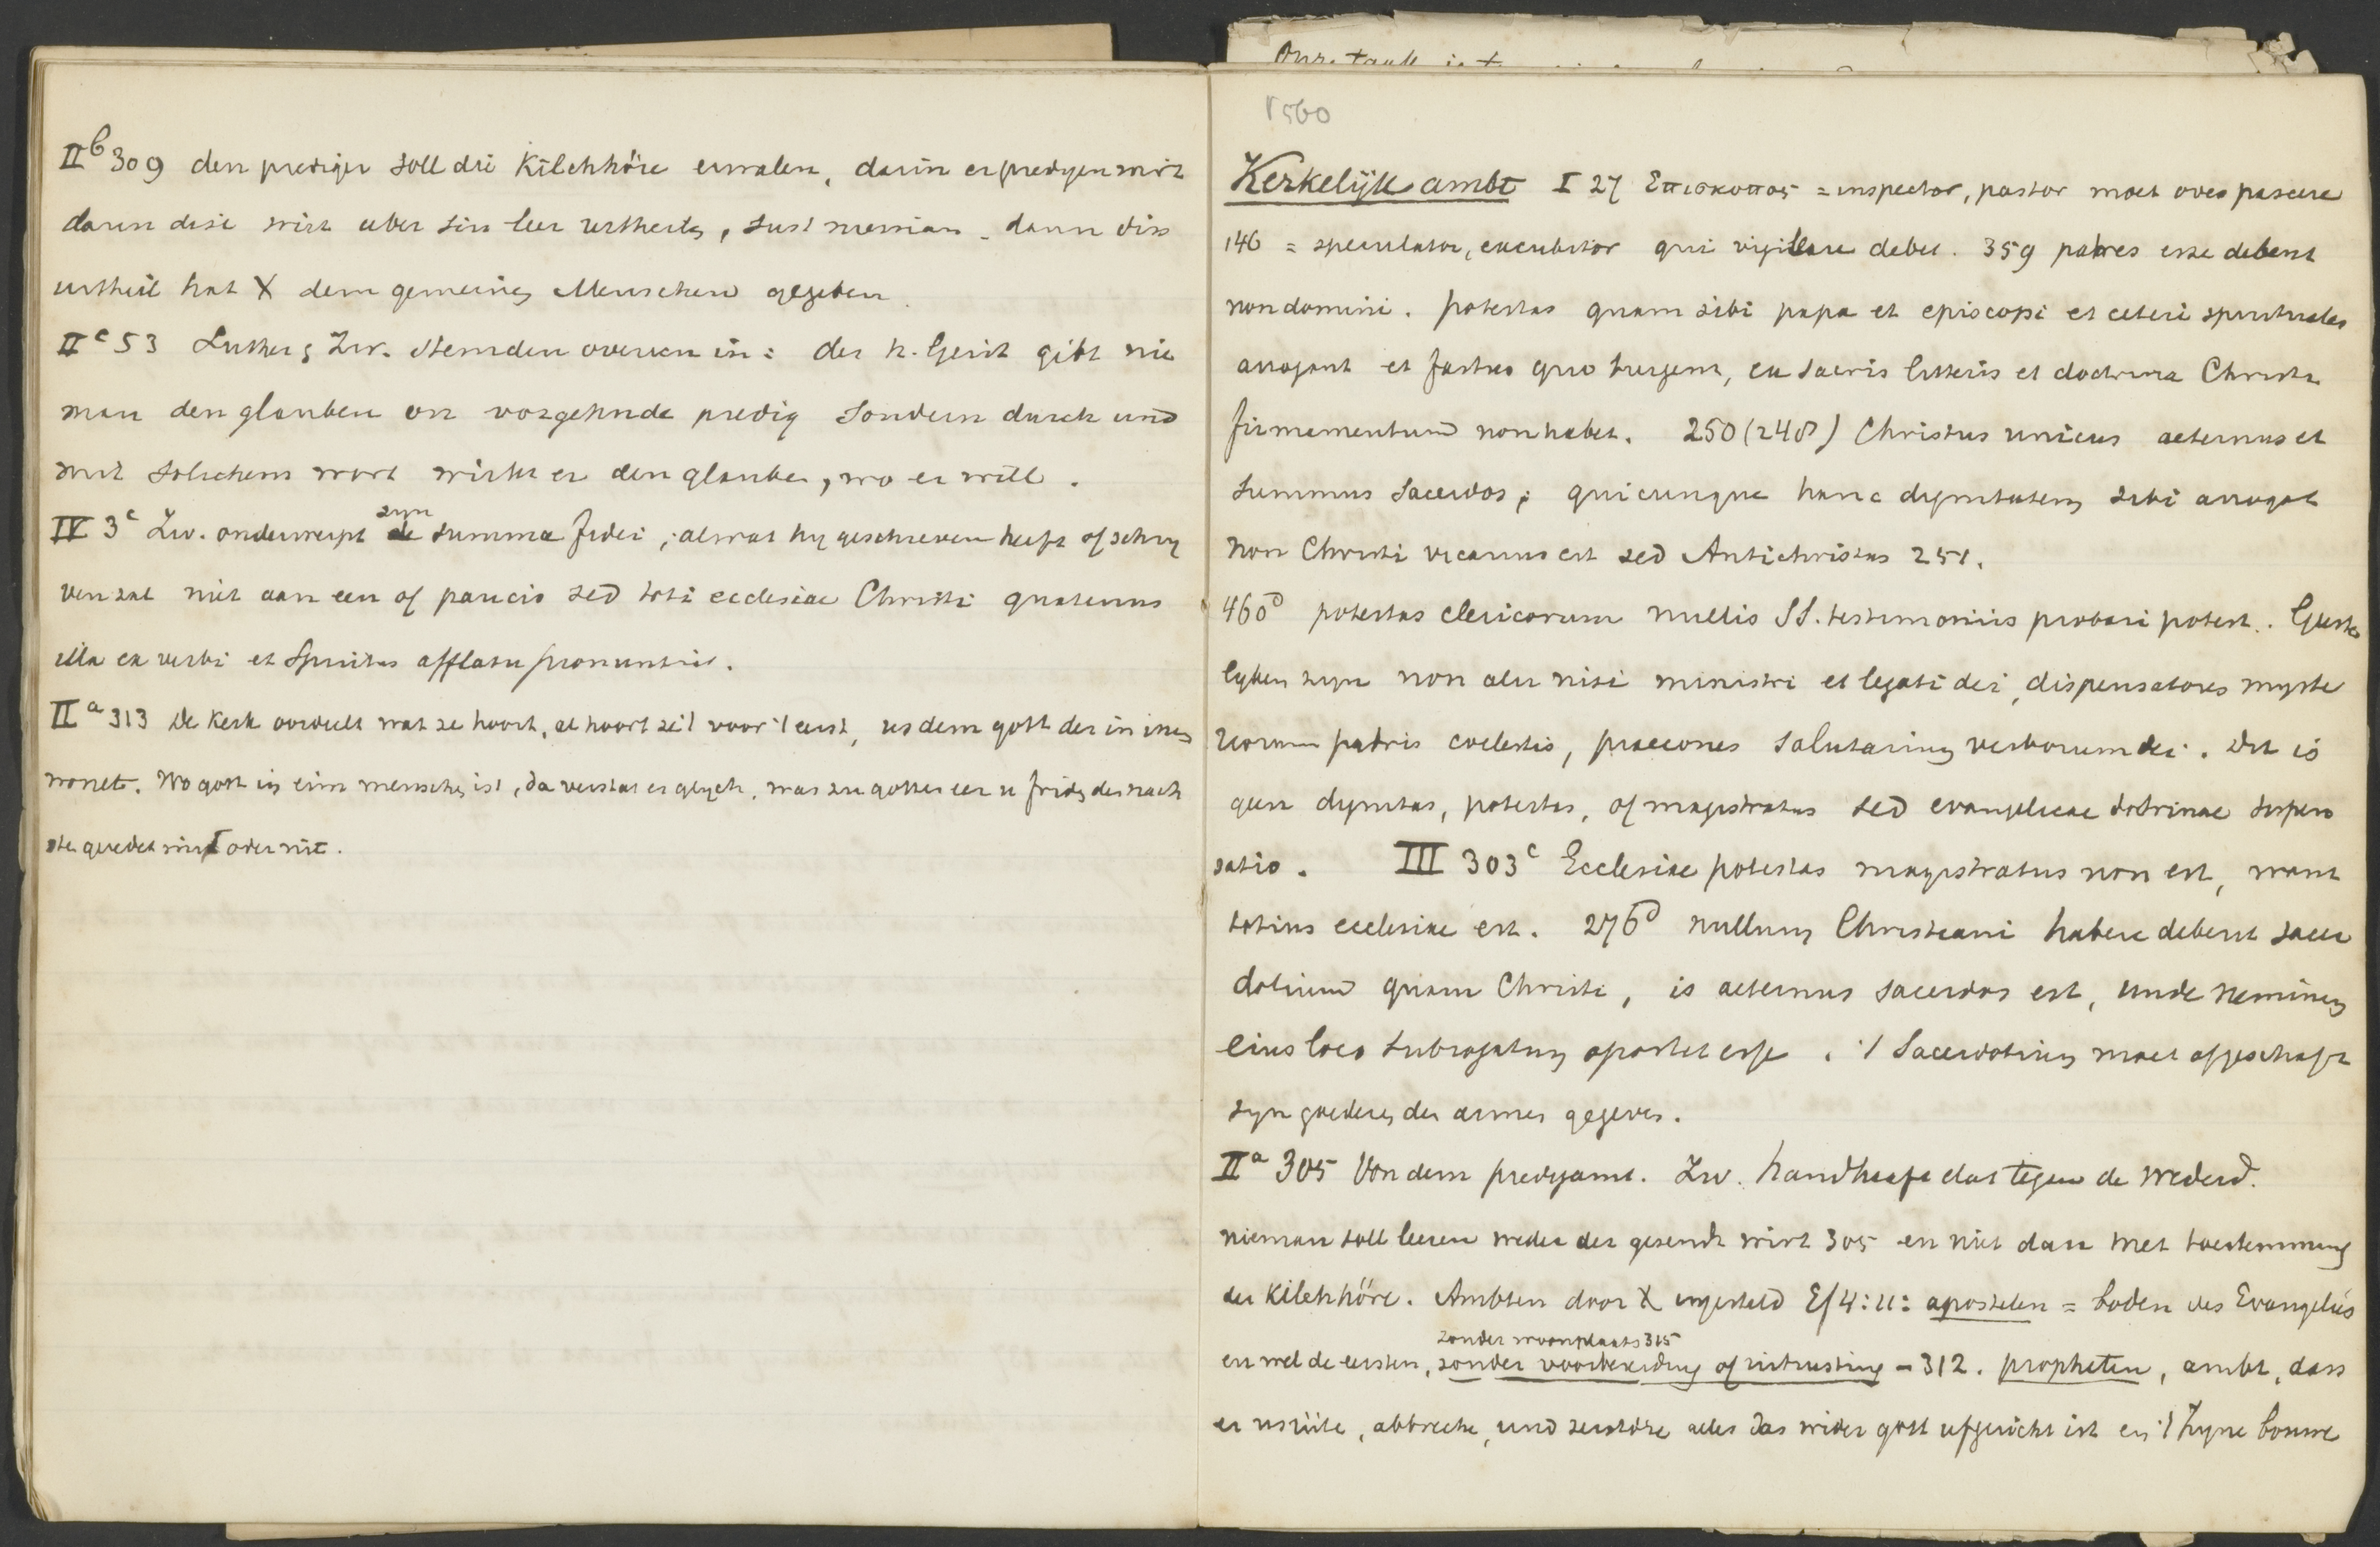 II b 309 den prediger soll die Kilchhöre erwalen, darin er predyen wirt
darin dise wirt uber sin leer urtheilen, sust nieman. dann diss
urtheil hat X dem gemeinen Menschen gegeben.
II c 53 Luther en Zw. stemden overeen in: der h. Geist gibt nie
man den glauben on vorgehnde predig sondern durch und
mit solichem wort wirkt er den glauben, wo er will.
IV 3c Zw. onderwerpt de zyn summa fidei, al wat hy geschreven heeft of schry
ven zal niet aan een of paucis sed toti ecclesiae Christi quatenus
illa ex verbi et Spiritus afflatu pronuntiat.
II a 313 de Kerk oordeelt wat ze hoort, al hoort ze 't voor 't eerst, us dem gott der in inen
wonet. Wo gott in eim menschen ist, da verstat er glych, was zu gottes eer u friden des nach
sten geredet wirt oder nit.
Onze taak is
1560
Kerkelijk ambt I 27 Επισκοπος = inspector, pastor moet oves pascere
146 = speculator, excubitor qui vigilare debet. 359 patres esse debent
non domini. potestas quam sibi papa et episcopi et ceteri spirituales
arrogant et fastus quo turgent, ex sacris litteris et doctrina Christi
firmamentum non habet. 250 (248) Christus unicus aeternus et
summus Sacerdos; quicunque hanc dignitatem sibi arrogat
non Christi vicarius est sed Antichristus 251.
460d potestas clericorum nullis SS. testimoniis probari potest. Geeste
lyken zyn non alii nisi ministri et legati dei, dispensatores myste
riorum patris coelestis, praecones salutarium verborum dei. Dit is
geen dignitas, potestas, of magistratus sed evangelicae doctrinae dispen
satio. III 303c Ecclesiae potestas magistratus non est, want
totius ecclesiae est. 276d nullum Christiani habere debent sacer
dotium quam Christi, is aeternus sacerdos est, unde neminem
eius loco subrogatum oportet esse. 't Sacerdotium moet afgeschaft
zyn goederen der armen gegeven.
II a 305 Von dem predyamt. Zw. handhaaft dat tegen de wederd.
nieman soll leeren weder der gesendt wirt 305 en niet dan met toestemming
der Kilchhöre. Ambten door X ingesteld Ef 4:11: apostelen = boden des Evangelies
zonder woonplaats 315
en wel de eersten, zonder voorbereiding of uitrusting - 312. propheten, ambt, dass
er usrüte, abbreche, und zerstöre alles das wider gott ufgericht ist en 't zyne bouwe